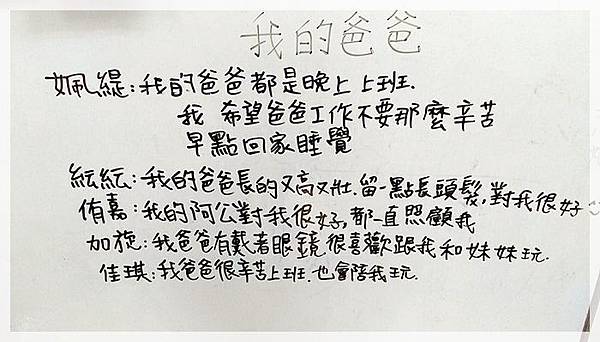 我的爸爸
姵緹:我的爸爸都是晚上上班.
我 希望爸爸工作不要那麼辛苦
早點回家睡覺
紜紜:我的爸爸長的又高又壯.留一點長頭髮,對我很好
侑嘉:我的阿公對我很好,都一直照顧我
加旋:我爸爸有戴著眼鏡很喜歡跟我和妹妹玩.
佳琪:我爸爸很辛苦上班.也會陪我玩.